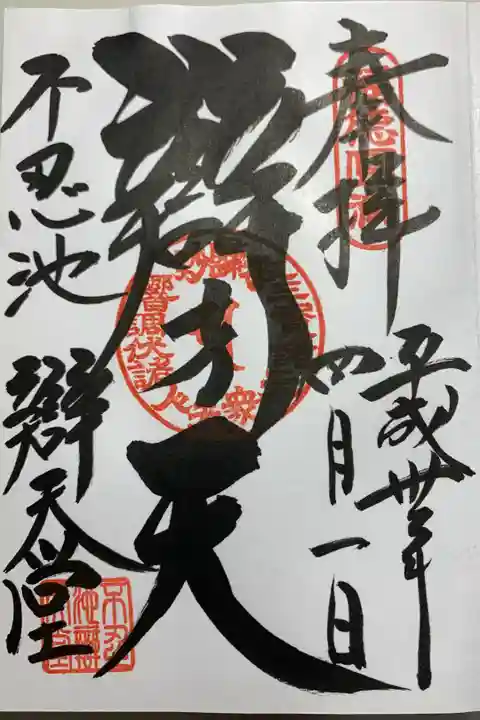 奉拝
平成卅年
四月一日
辯才天
不忍池
辯天堂